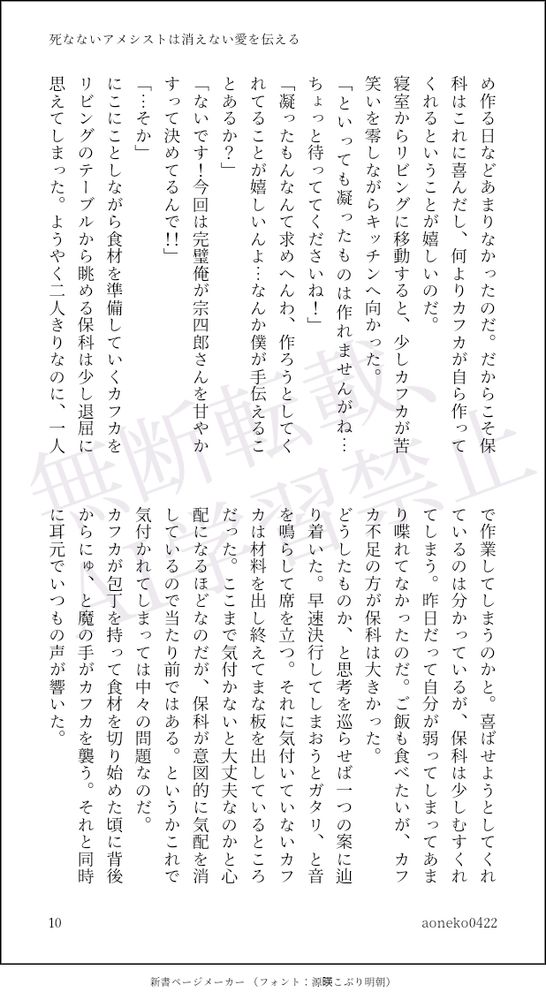 死なないアメシストは消えない愛を伝える
め作る日などあまりなかったのだ。だからこそ保
科はこれに喜んだし、何よりカフカが自ら作って
くれるということが嬉しいのだ。
寝室からリビングに移動すると、少しカフカが苦
笑いを零しながらキッチンへ向かった。
「といっても凝ったものは作れませんがね…
ちょっと待っててくださいね！」
「凝ったもんなんて求めへんわ、作ろうとしてく
れてることが嬉しいんよ…なんか僕が手伝えるこ
とあるか？」
「ないです！今回は完璧俺が宗四郎さんを甘やか
すって決めてるんで!!」
「…そか」
にこにことしながら食材を準備していくカフカを
リビングのテーブルから眺める保科は少し退屈に
思えてしまった。ようやく二人きりなのに、一人
で作業してしまうのかと。喜ばせようとしてくれ
ているのは分かっているが、保科は少しむすくれ
てしまう。昨日だって自分が弱ってしまってあま
り喋れてなかったのだ。ご飯も食べたいが、カフ
カ不足の方が保科は大きかった。
どうしたものか、と思考を巡らせば一つの案に辿
り着いた。早速決行してしまおうとガタリ、と音
を鳴らして席を立つ。それに気付いていないカフ
カは材料を出し終えてまな板を出しているところ
だった。ここまで気付かないと大丈夫なのかと心
配になるほどなのだが、保科が意図的に気配を消
しているので当たり前ではある。というかこれで
気付かれてしまっては中々の問題なのだ。
カフカが包丁を持って食材を切り始めた頃に背後
からにゅ、と魔の手がカフカを襲う。それと同時
に耳元でいつもの声が響いた。
無断転載、
AI学習禁止
10
aoneko0422
新書ページメーカー（フォント：源暎こぶり明朝）